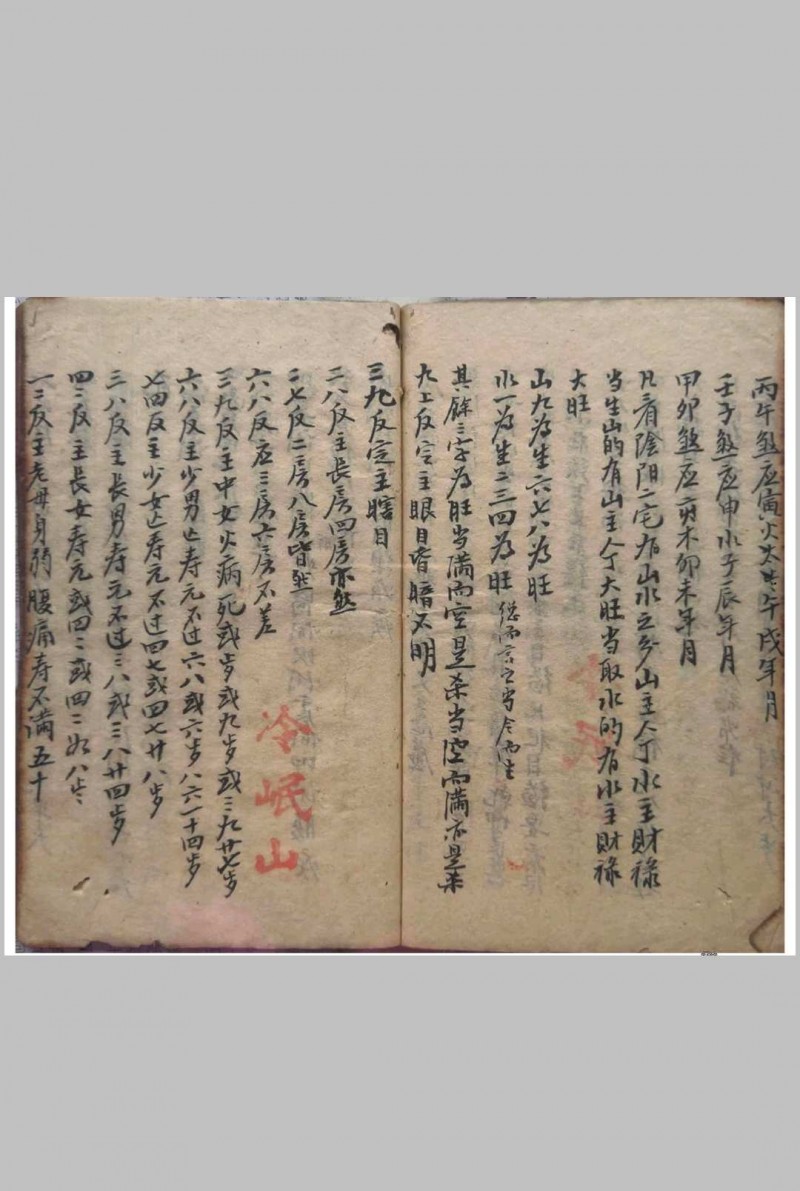 丙午煞应寅火太共午戌年月
壬子煞应申水子辰年月
甲卯煞应亥木卯未年月
凡看陰阳二宅有山水之分山主人丁水主財禄
当生山的有山主人丁大旺当取水的有水主財禄
大旺
山九為生六七八為旺
水一為生二三四為旺 総而言之当令而生
其餘三字為旺当満而空是杀当空而满亦是杀
九上反定主眼目昏暗不明
三九反定主瞎目
二八反主長房四房亦然
二七反二房八房皆然
六八反应三房六房不差
三九反主中女火病死或步或九步或三九廿七步
六八反主少男亡寿元不过六八或六步八六一十四步
七四反主少女亡寿元不过四七或四七廿八步
三八反主長男寿元不过三八或三八廿四步
四二反主長女寿元或四二或四二如八步
一二反主老母身弱腰痛寿不满五十
冷岷山